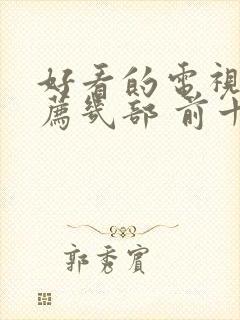 好看的電視
薦幾部 前十
郭秀賓